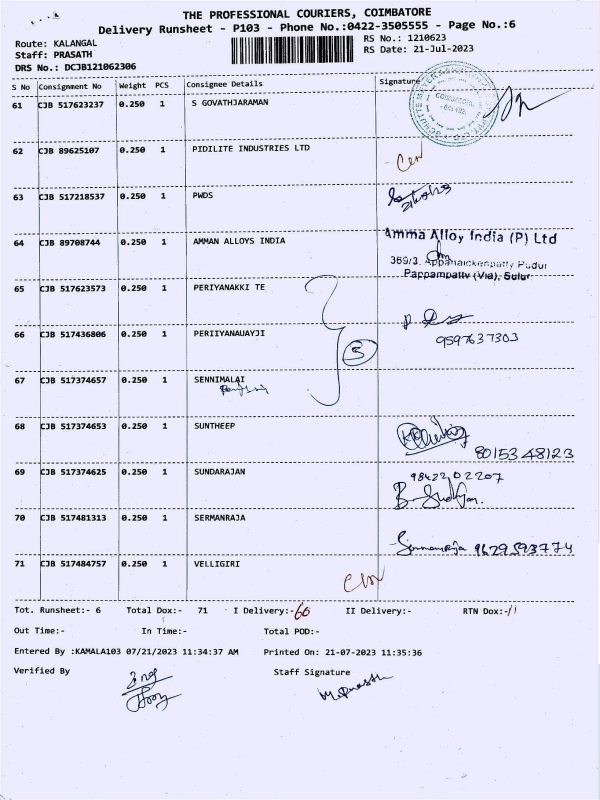 THE PROFESSIONAL COURIERS, COIMBATORE
Delivery Runsheet - P103 - Phone No.:0422-3505555 - Page No.:6
Route: KALANGAL
RS No.: 1210623
Staff: PRASATH
RS Date: 21-Jul-2023
DRS No.: DCJB121062306
S No Consignment No Weight PCS Consignee Details Signature
61 CJB 517623237 0.250 1 S GOVATHJARAMAN
62 CJB 89625107 0.250 1 PIDILITE INDUSTRIES LTD
63 CJB 517218537 0.250 1 PWDS
64 CJB 89708744 0.250 1 AMMAN ALLOYS INDIA
Amma Alloy India (P) Ltd
369/3, Appanaickenpatty Pudur
Pappampatty (Via), Sulur
65 CJB 517623573 0.250 1 PERIYANAKKI TE
66 CJB 517436806 0.250 1 PERIIYANAUAYJI
9597637303
67 CJB 517374657 0.250 1 SENNIMALAI
68 CJB 517374653 0.250 1 SUNTHEEP
8015348123
69 CJB 517374625 0.250 1 SUNDARAJAN
9842202207
70 CJB 517481313 0.250 1 SERMANRAJA
9629593774
71 CJB 517484757 0.250 1 VELLIGIRI
Tot. Runsheet:- 6 Total Dox:- 71 I Delivery:-60 II Delivery:- RTN Dox:-11
Out Time:- In Time:- Total POD:-
Entered By :KAMALA103 07/21/2023 11:34:37 AM Printed On: 21-07-2023 11:35:36
Verified By Staff Signature
M.Prasath